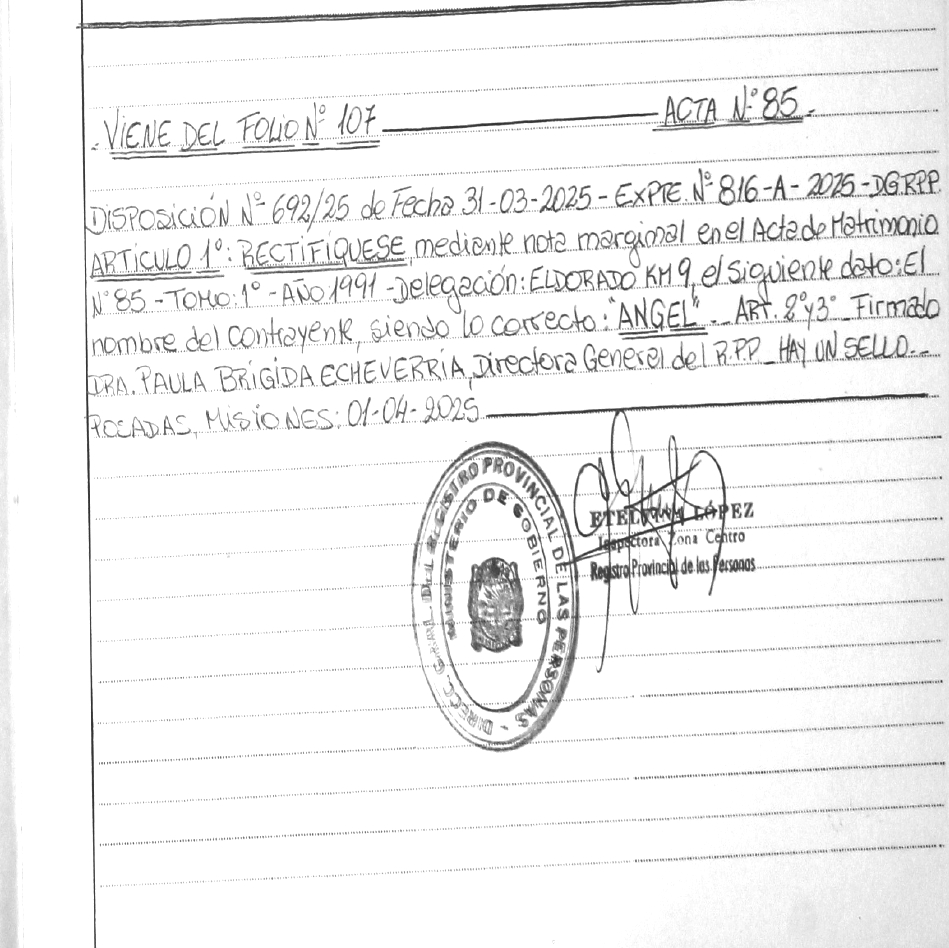 . VIENE DEL FOLIO Nº 107 ACTA Nº 85.
DISPOSICIÓN Nº 692/25 de Fecha 31-03-2025 - EXPTE. Nº 816-A - 2025 - DGRPP.
ARTICULO 1º: RECTIFIQUESE, mediante nota marginal en el Acta de Matrimonio
Nº 85 - TOMO: 1º - AÑO 1991 - Delegación: ELDORADO KM 9, el siguiente dato: El
nombre del contrayente, siendo lo correcto: "ANGEL". ART. 2º y 3º - Firmado
DRA. PAULA BRIGIDA ECHEVERRIA, Directora General del R.P.P - HAY UN SELLO.-
POSADAS, MISIONES: 01-04-2025
REGISTRO PROVINCIAL DE LAS PERSONAS -
MINISTERIO DE GOBIERNO
LÓPEZ
Inspectora Zona Centro
Registro Provincial de las Personas